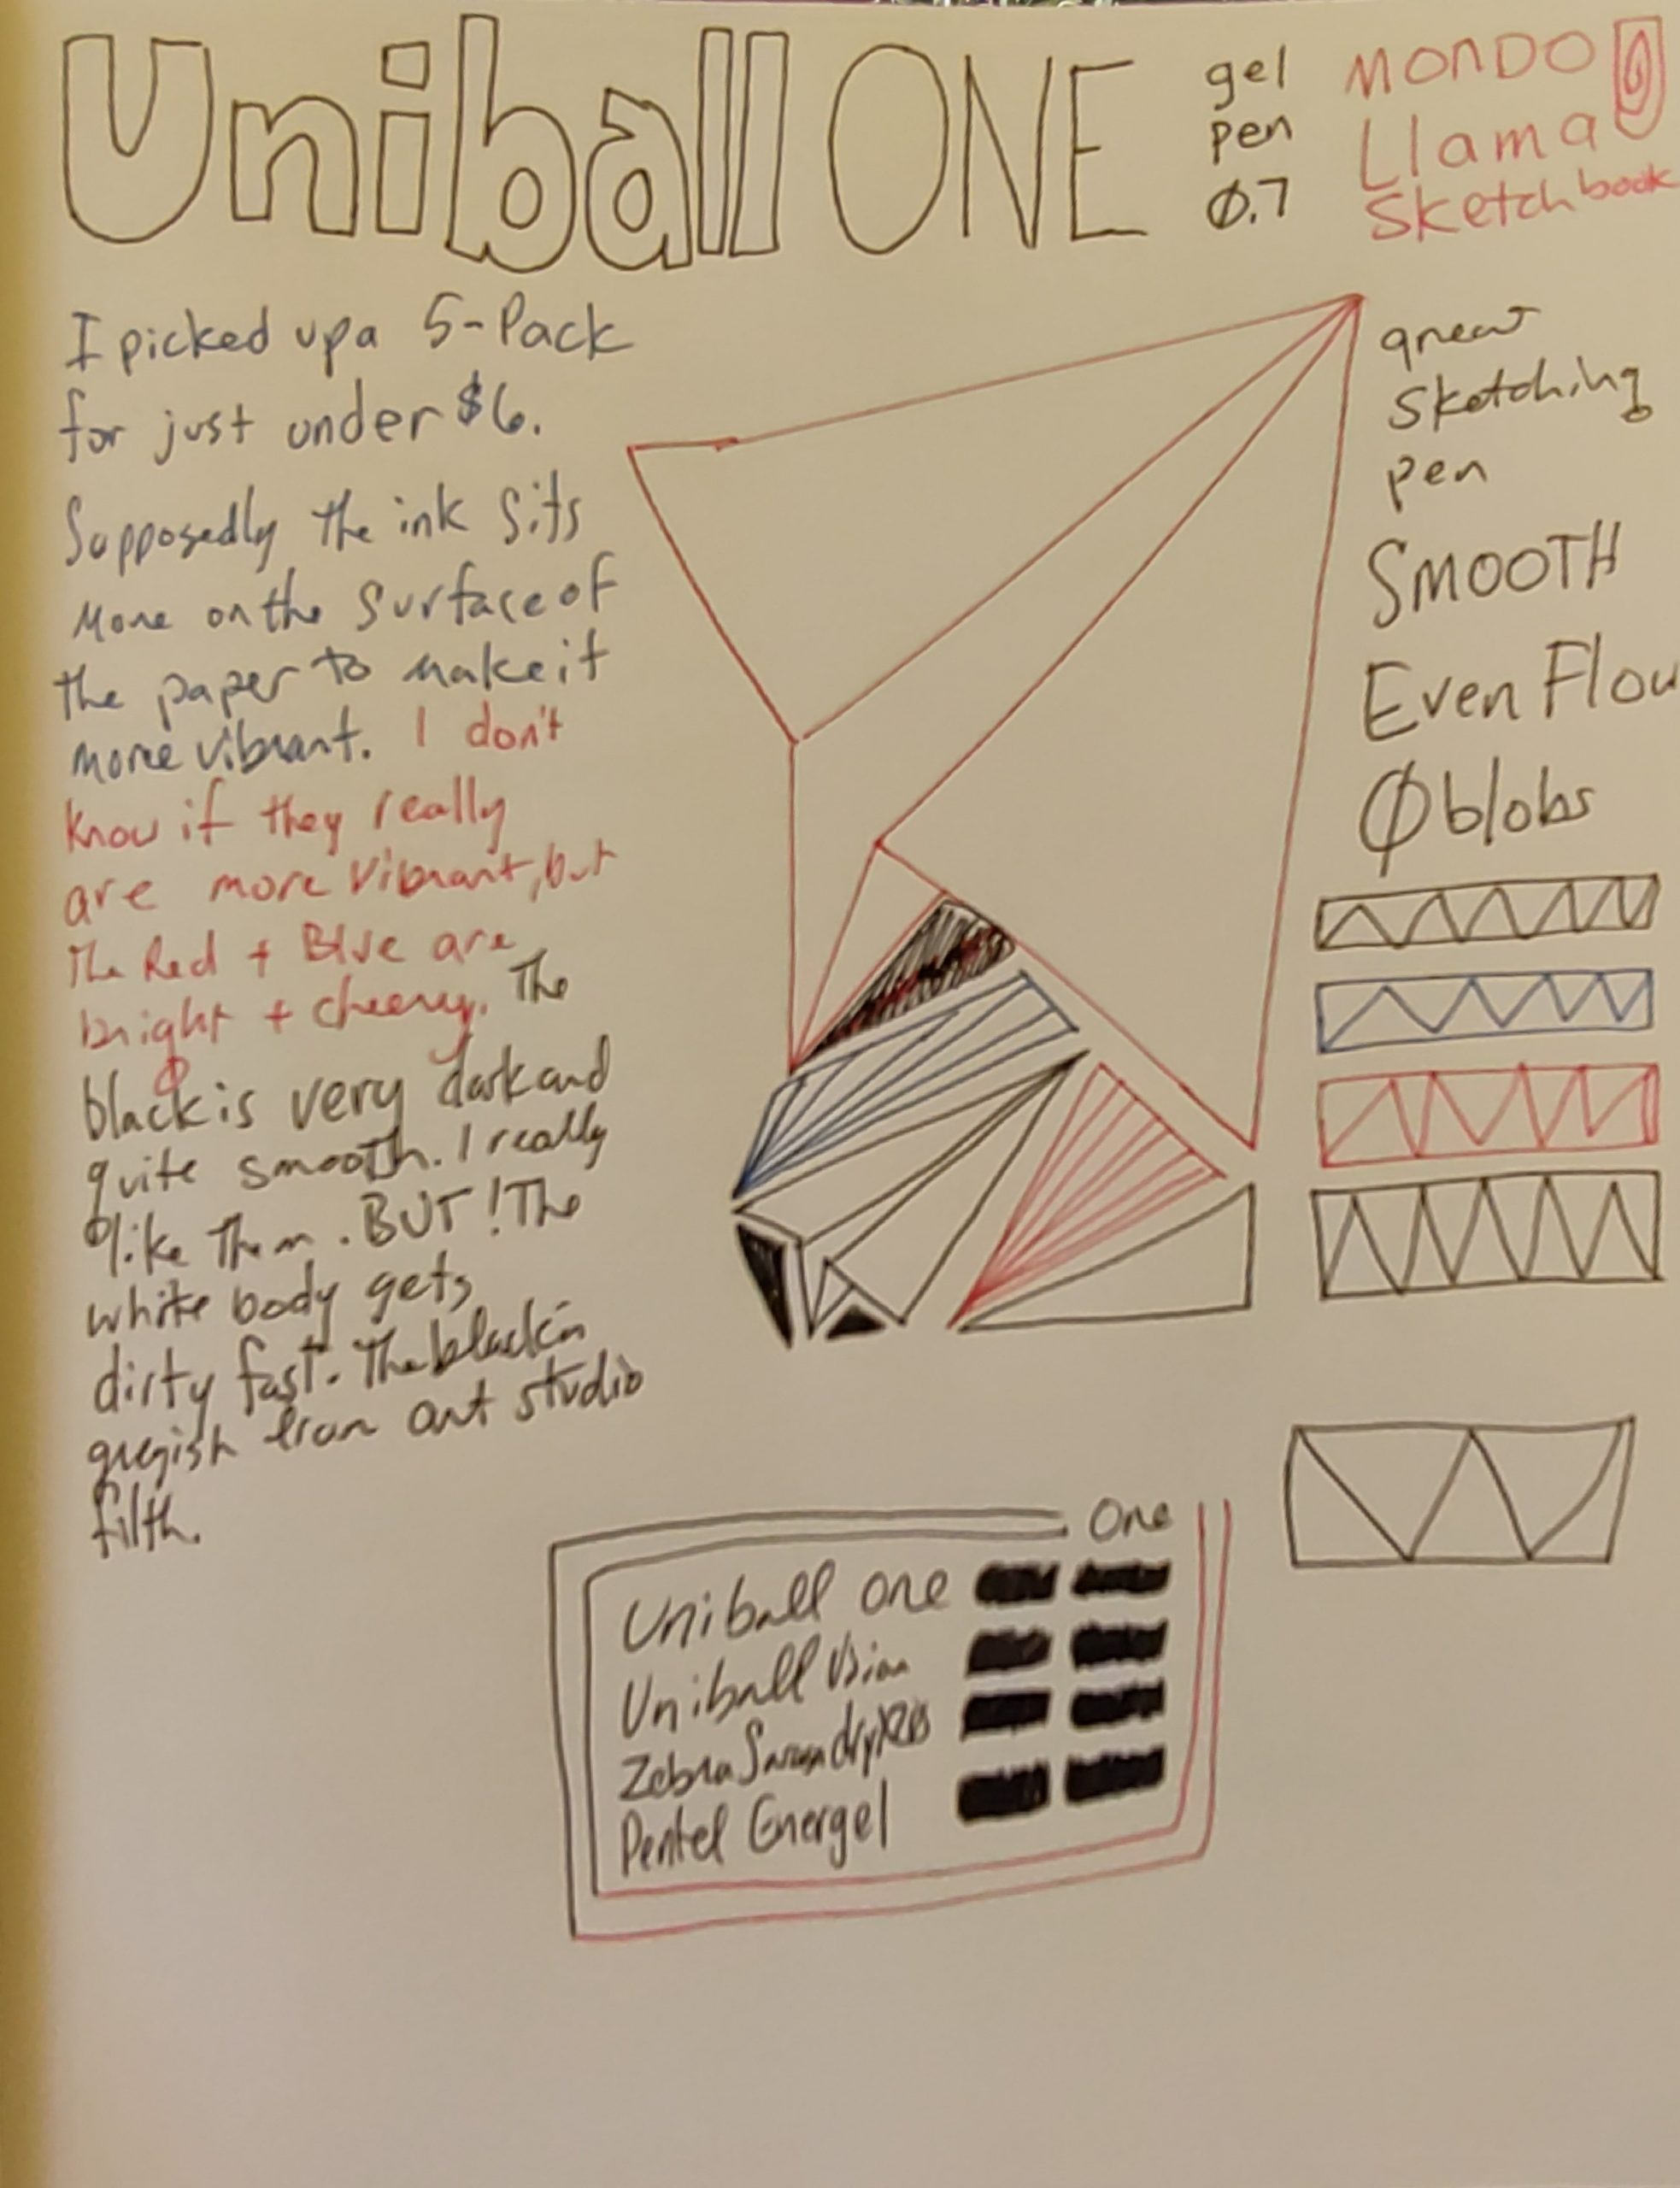 Uniball ONE
gel
pen
0.7
MONDO
Llama
Sketchbook
I picked up a 5-Pack
for just under $6.
Supposedly the ink sits
more on the surface of
the paper to make it
more vibrant. I don't
know if they really
are more vibrant, but
the Red + Blue are
bright + cheery. The
black is very dark and
quite smooth. I really
like them. BUT! The
white body gets
dirty fast. The black is
greyish from art studio
filth.
great
sketching
pen
SMOOTH
Even Flow
Ø blobs
One
Uniball one
Uniball Vision
Zebra Sarasa dry X20
Pentel Energel